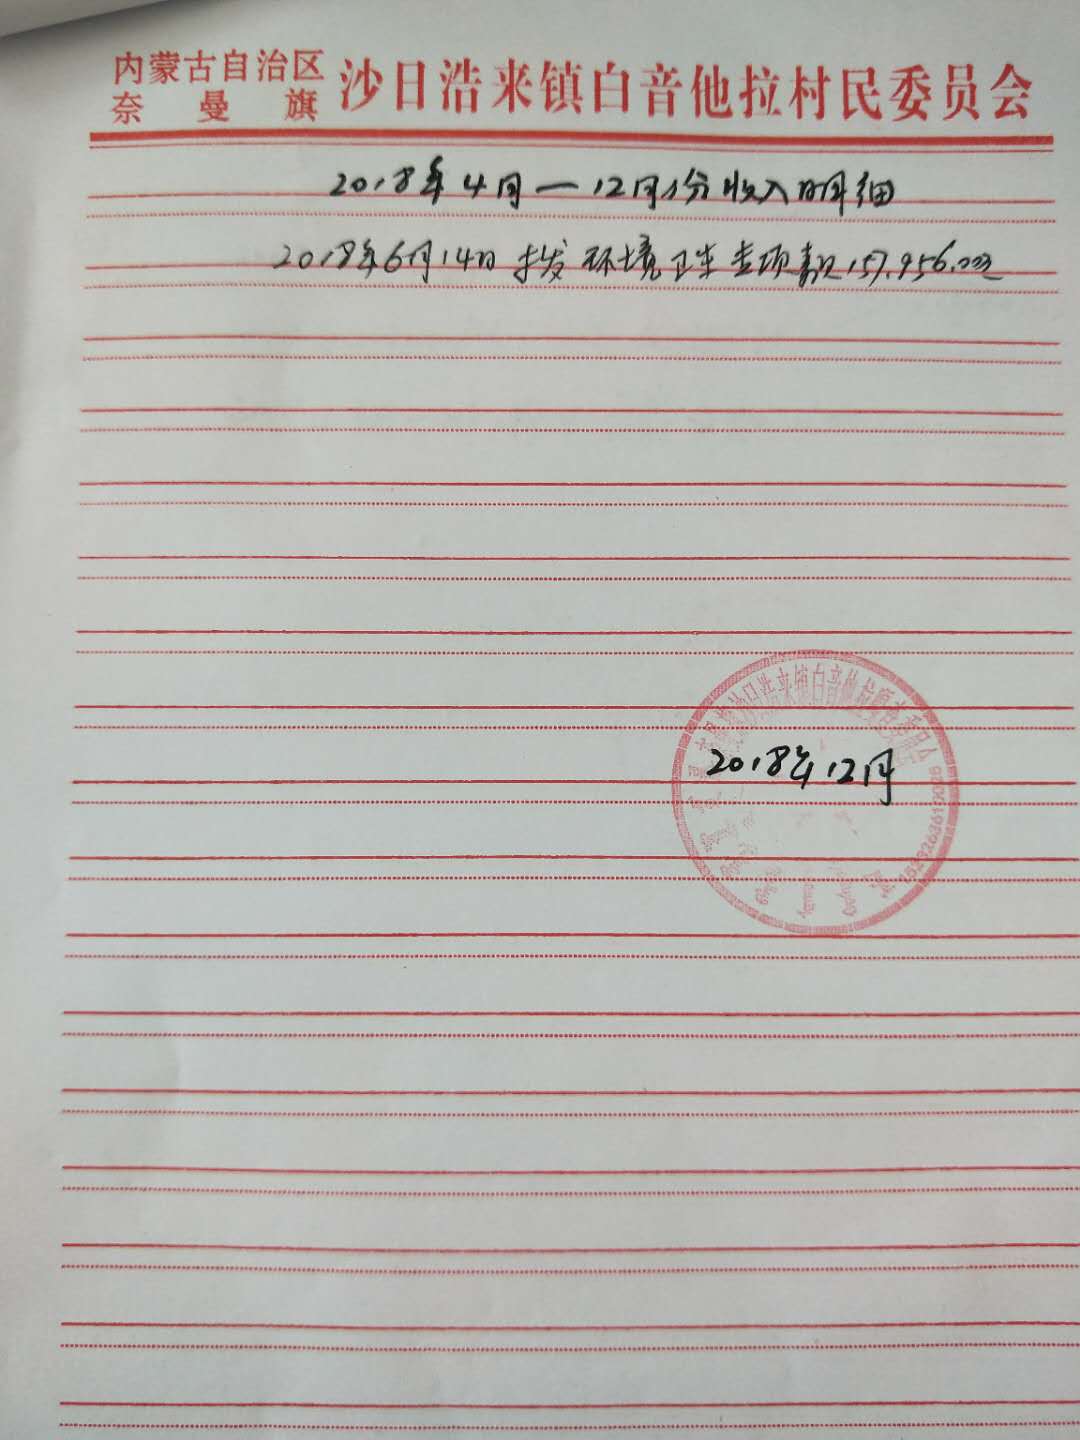 内蒙古自治区
奈曼旗
沙日浩来镇白音他拉村民委员会
2018年4月—12月份收入明细
2018年6月14日拨环境卫生专项款157.956.00元
2018年12月
1529263610026